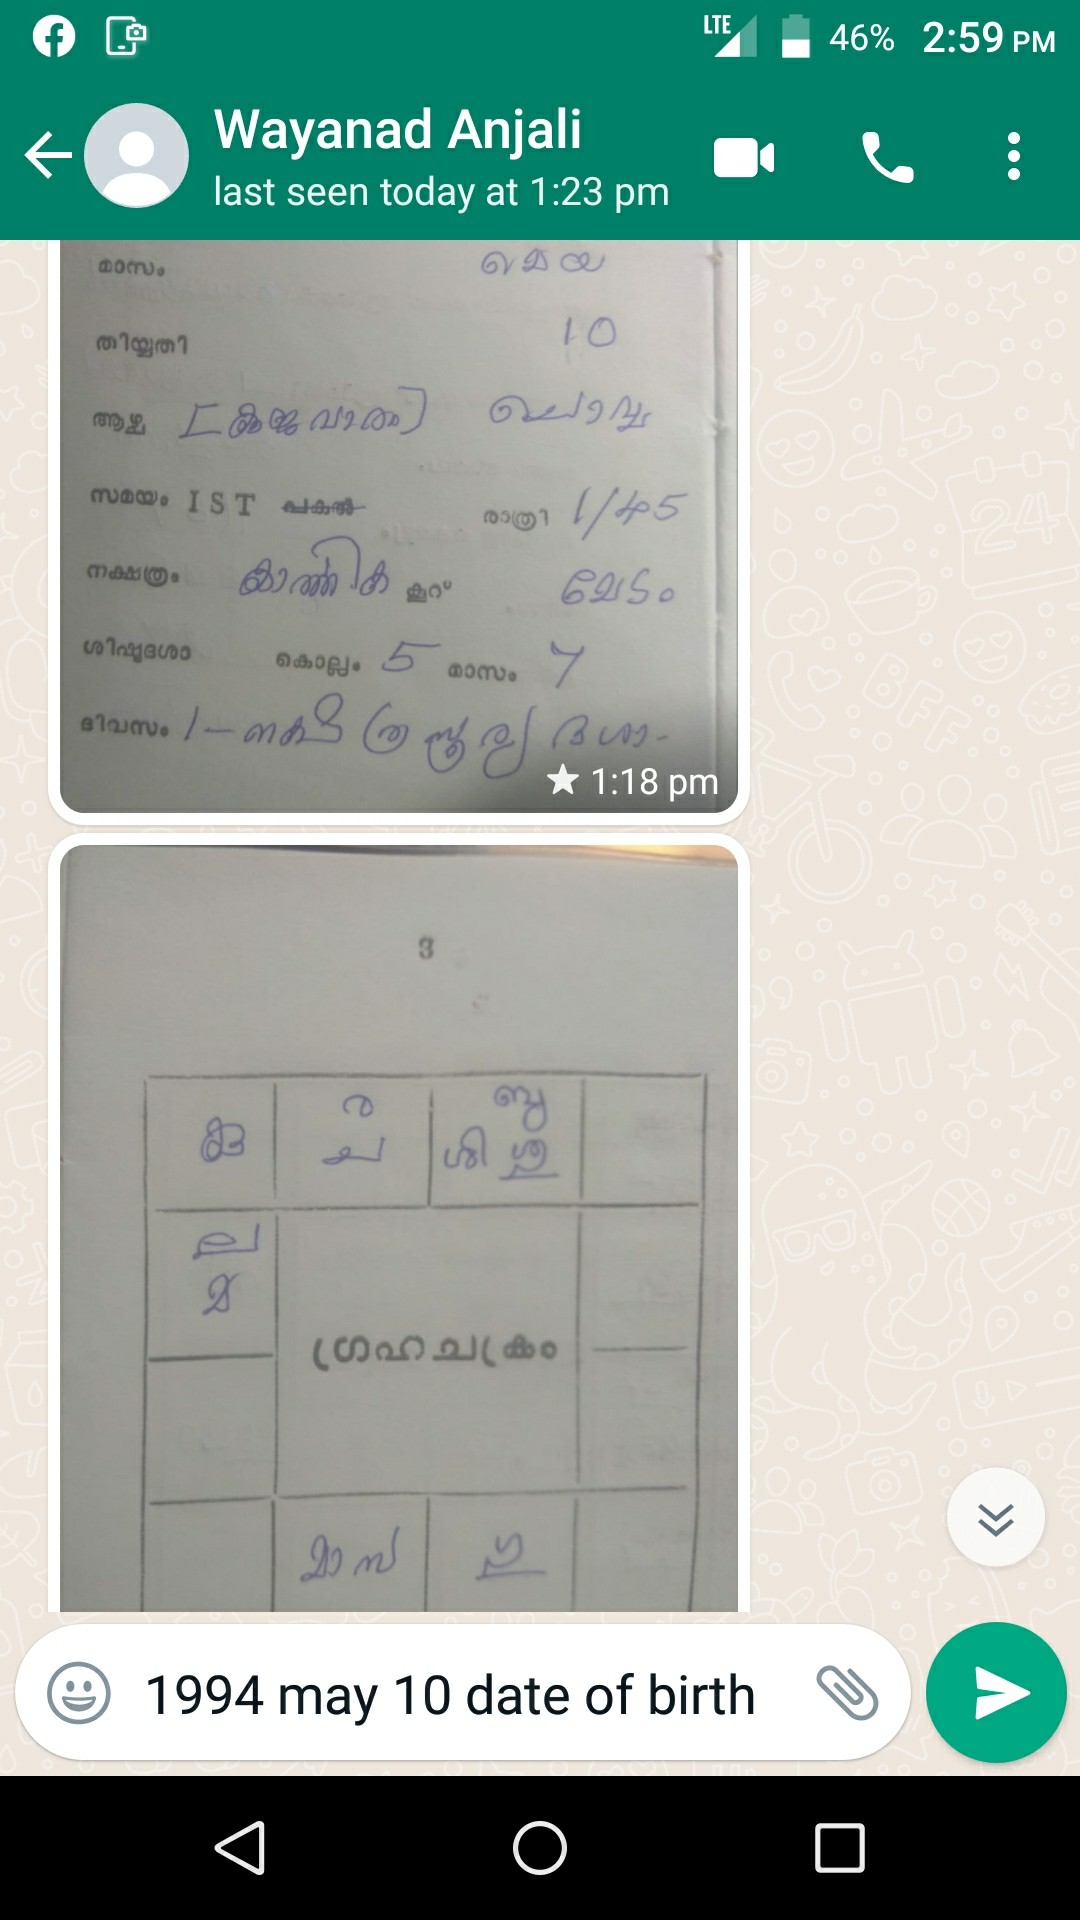 LTE 46% 2:59 PM
Wayanad Anjali
last seen today at 1:23 pm
മാസം മെയ്
തിയ്യതി 10
ആഴ്ച [കുജവാരം] ചൊവ്വ
സമയം IST പകൽ രാത്രി 1/45
നക്ഷത്രം കാർത്തിക കൂറ് മേടം
ശിഷ്ടദശാ കൊല്ലം 5 മാസം 7
ദിവസം 1 - നക്ഷത്ര സൂര്യ ദശാ-
1:18 pm
3
കു ര ബു
ച ശി ശു
ല
മ
ഗ്രഹചക്രം
മാസ ഗു
1994 may 10 date of birth